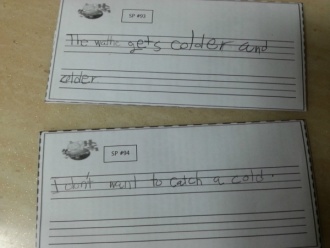 SP #93
The wathe gets colder and
colder.
SP #94
I don't want to catch a cold.